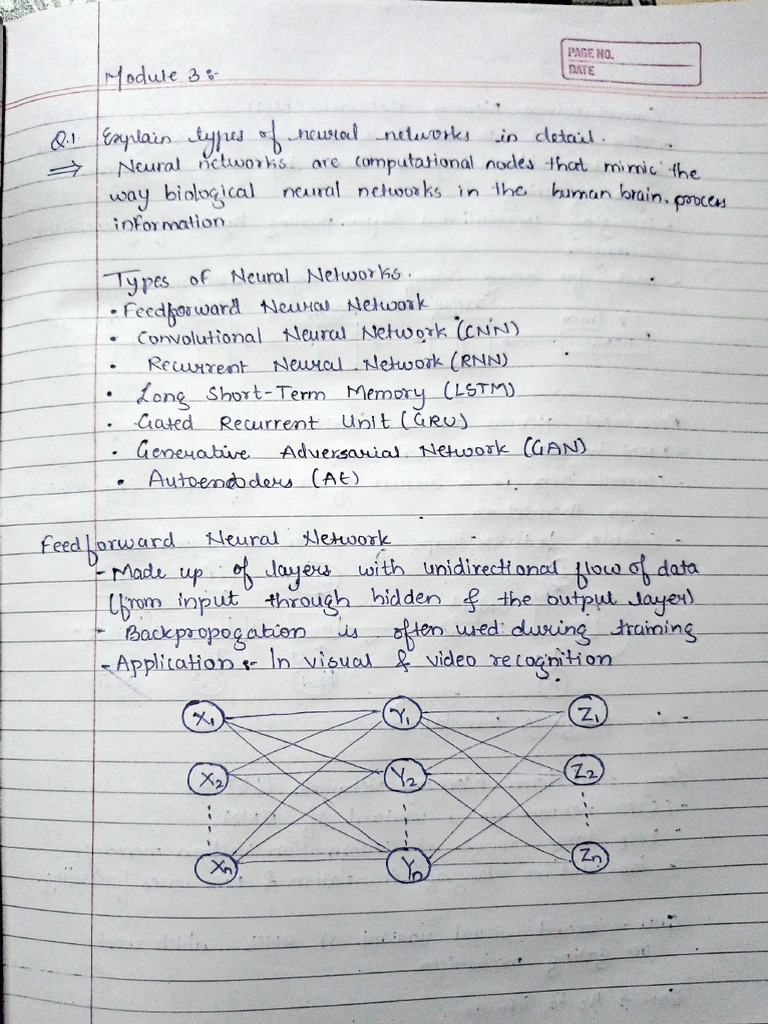 PAGE NO.
DATE
Module 3:-
Q.1 Explain types of neural networks in detail.
⇒ Neural networks are computational nodes that mimic the
way biological neural networks in the human brain. process
information
Types of Neural Networks.
• Feedforward Neural Network
• Convolutional Neural Network (CNN)
• Recurrent Neural Network (RNN)
• Long Short-Term Memory (LSTM)
• Gated Recurrent Unit (GRU)
• Generative Adversarial Network (GAN)
• Autoencoders (AE)
Feedforward Neural Network
- Made up of layers with unidirectional flow of data
(from input through hidden & the output layer)
- Backpropogation is often used during training
- Application :- In visual & video recognition
X1 Y1 Z1
X2 Y2 Z2
Xn Yn Zn